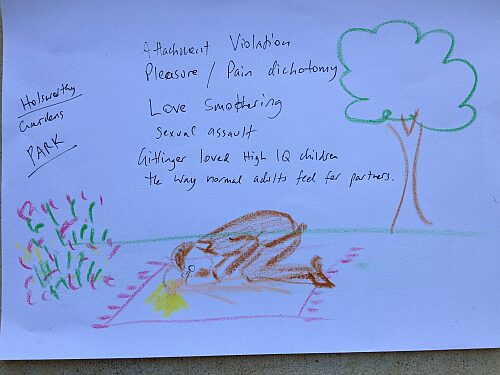 Attachment Violation
Pleasure / Pain dichotomy
Love Smothering
sexual assault
Gittinger loved High IQ children
the way normal adults feel for partners.
Holsworthy
Gardens
PARK